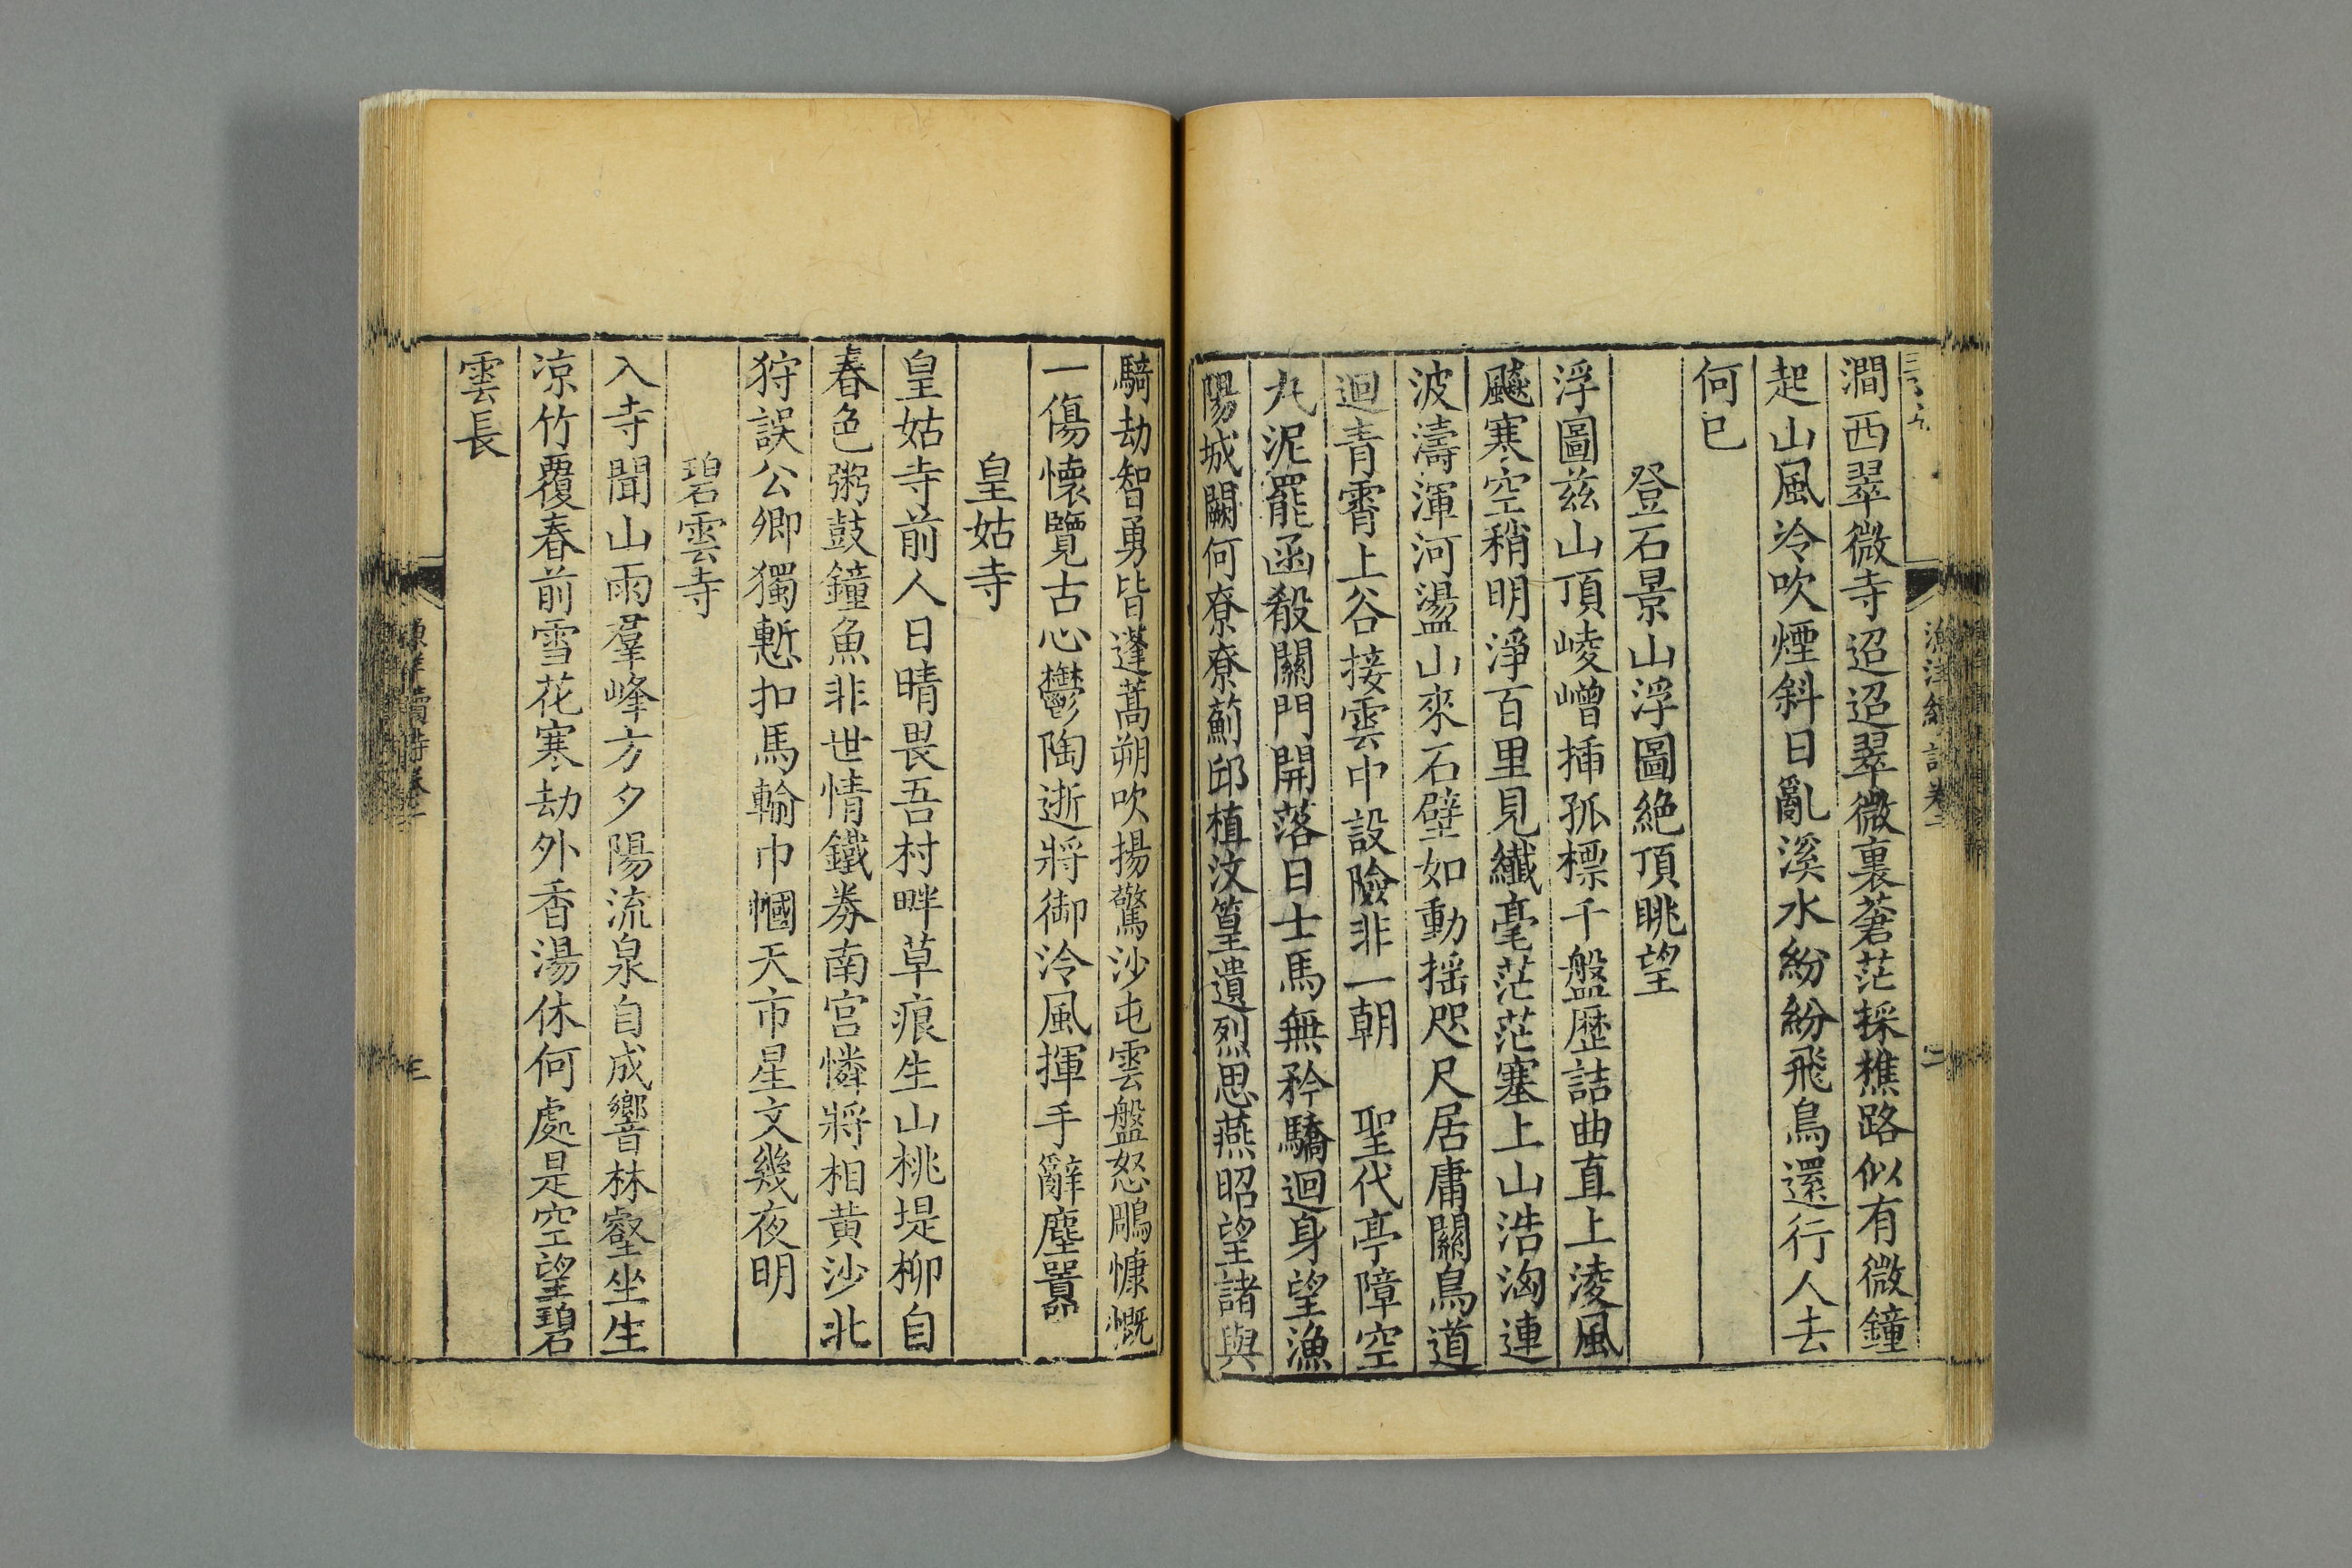 澗西翠微寺迢迢翠微裏蒼茫採樵路似有微鐘
起山風冷吹煙斜日亂溪水紛紛飛鳥還行人去
何已
登石景山浮圖絶頂眺望
浮圖兹山頂崚嶒揷孤標千盤歷詰曲直上淩風
飇寒空稍明淨百里見纖毫茫茫塞上山浩洶連
波濤渾河盪山來石壁如動摇咫尺居庸關鳥道
迴青霄上谷接雲中設險非一朝 聖代亭障空
丸泥罷函殽關門開落日士馬無矜驕迴身望漁
陽城闕何尞尞薊邱植汶篁遺烈思燕昭望諸與
騎劫智勇皆蓬蒿朔吹揚驚沙屯雲盤怒鵰慷慨
一傷懷覽古心鬱陶逝將御泠風揮手辭塵囂
皇姑寺
皇姑寺前人日晴畏吾村畔草痕生山桃堤柳自
春色粥鼓鐘魚非世情鐵券南宫憐將相黄沙北
狩誤公卿獨慙扣馬輸巾幗天市星文幾夜明
碧雲寺
入寺聞山雨羣峰方夕陽流泉自成響林壑坐生
凉竹覆春前雪花寒劫外香湯休何處是空望碧
雲長